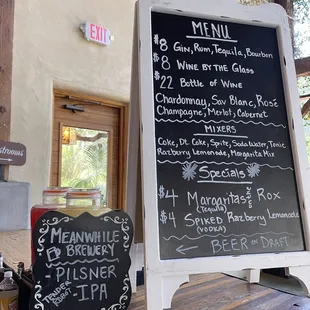 EXIT
MENU
$8 Gin, Rum, Tequila, Bourbon
$8 Wine by the Glass
$22 Bottle of Wine
Chardonnay, Sav Blanc, Rosé
Champagne, Merlot, Cabernet
Mixers
Coke, Dt. Coke, Sprite, Soda Water, Tonic
Razzberry Lemonade, Margarita Mix
Specials
$4 Margaritas Rox
(Tequila)
$4 Spiked Razberry Lemonade
(Vodka)
← Beer on Draft
Restrooms
Meanwhile
Brewery
- Pilsner
- IPA
Tender
Robot